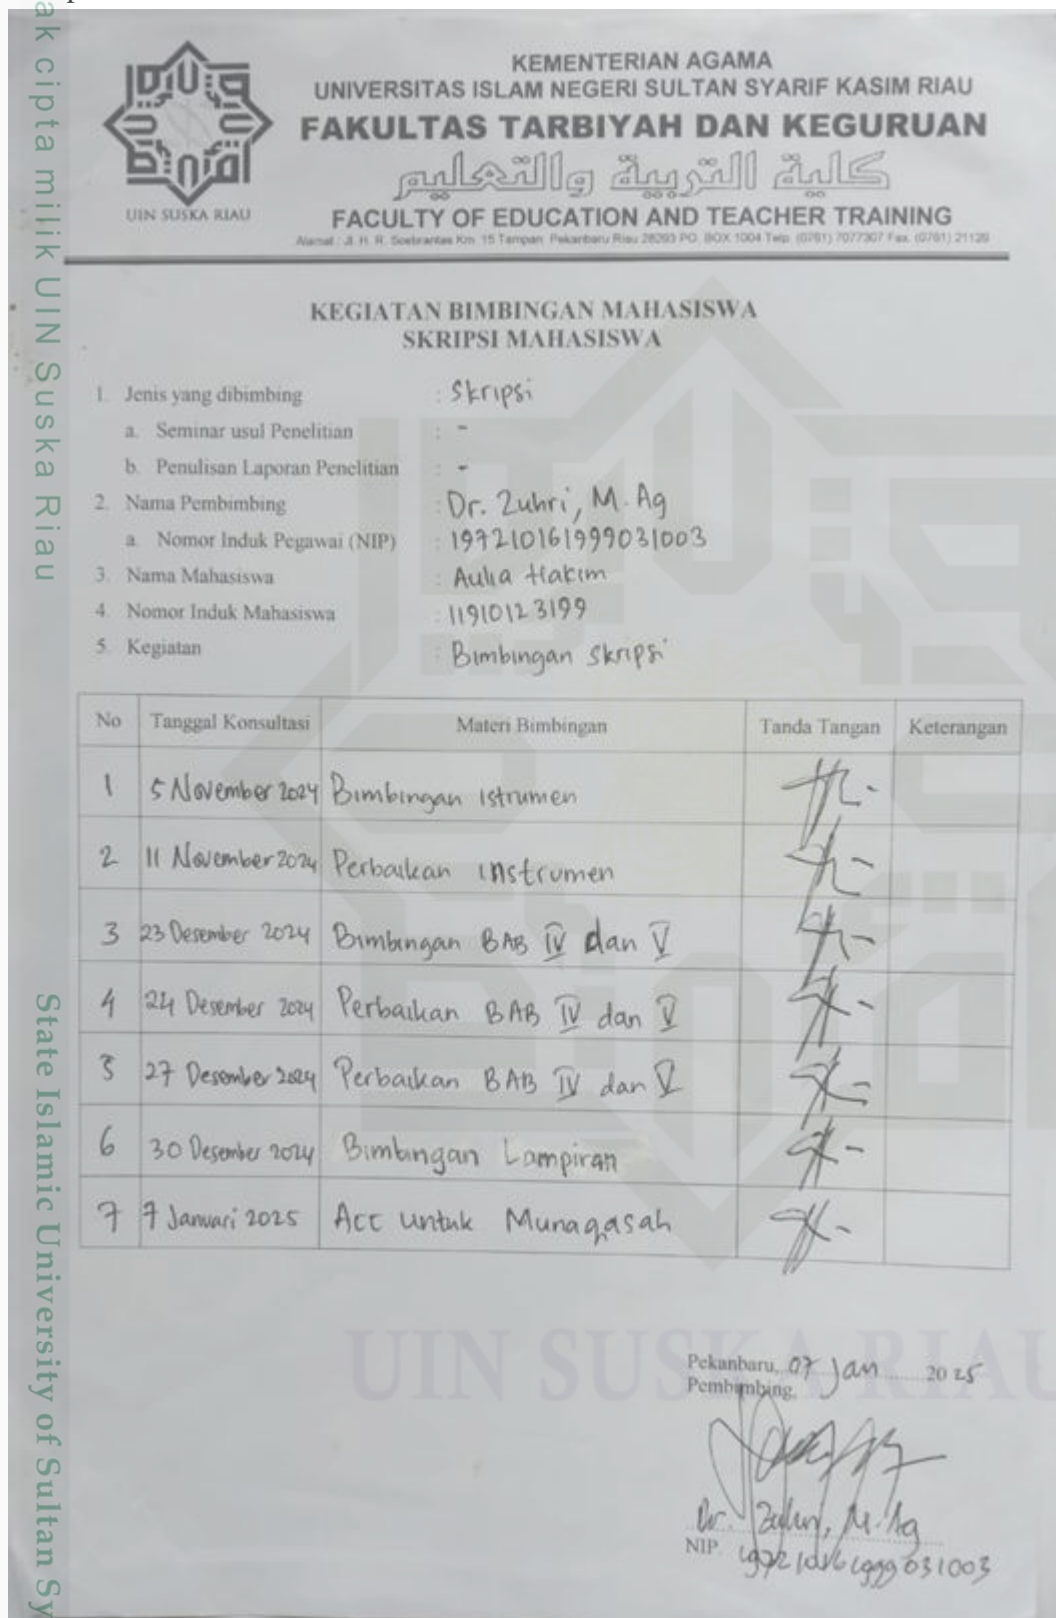 ak cipta milik UIN Suska Riau
State Islamic University of Sultan Sy
UIN SUSKA RIAU
KEMENTERIAN AGAMA
UNIVERSITAS ISLAM NEGERI SULTAN SYARIF KASIM RIAU
FAKULTAS TARBIYAH DAN KEGURUAN
كلية التربية والتعليم
FACULTY OF EDUCATION AND TEACHER TRAINING
Alamat : Jl. H. R. Soebrantas Km. 15 Tampan Pekanbaru Riau 28293 PO. BOX 1004 Telp. (0761) 7077307 Fax. (0761) 21129
KEGIATAN BIMBINGAN MAHASISWA
SKRIPSI MAHASISWA
1. Jenis yang dibimbing : Skripsi
a. Seminar usul Penelitian : -
b. Penulisan Laporan Penelitian : -
2. Nama Pembimbing : Dr. Zuhri, M. Ag
a. Nomor Induk Pegawai (NIP) : 197210161999031003
3. Nama Mahasiswa : Aulia Hakim
4. Nomor Induk Mahasiswa : 11910123199
5. Kegiatan : Bimbingan Skripsi
No Tanggal Konsultasi Materi Bimbingan Tanda Tangan Keterangan
1 5 November 2024 Bimbingan Istrumen
2 11 November 2024 Perbaikan instrumen
3 23 Desember 2024 Bimbingan BAB IV dan V
4 24 Desember 2024 Perbaikan BAB IV dan V
5 27 Desember 2024 Perbaikan BAB IV dan V
6 30 Desember 2024 Bimbingan Lampiran
7 7 Januari 2025 Acc untuk Munaqasah
UIN SUSKA RIAU
Pekanbaru, 07 Jan 2025
Pembimbing,
Dr. Zuhri, M. Ag
NIP. 197210161999031003